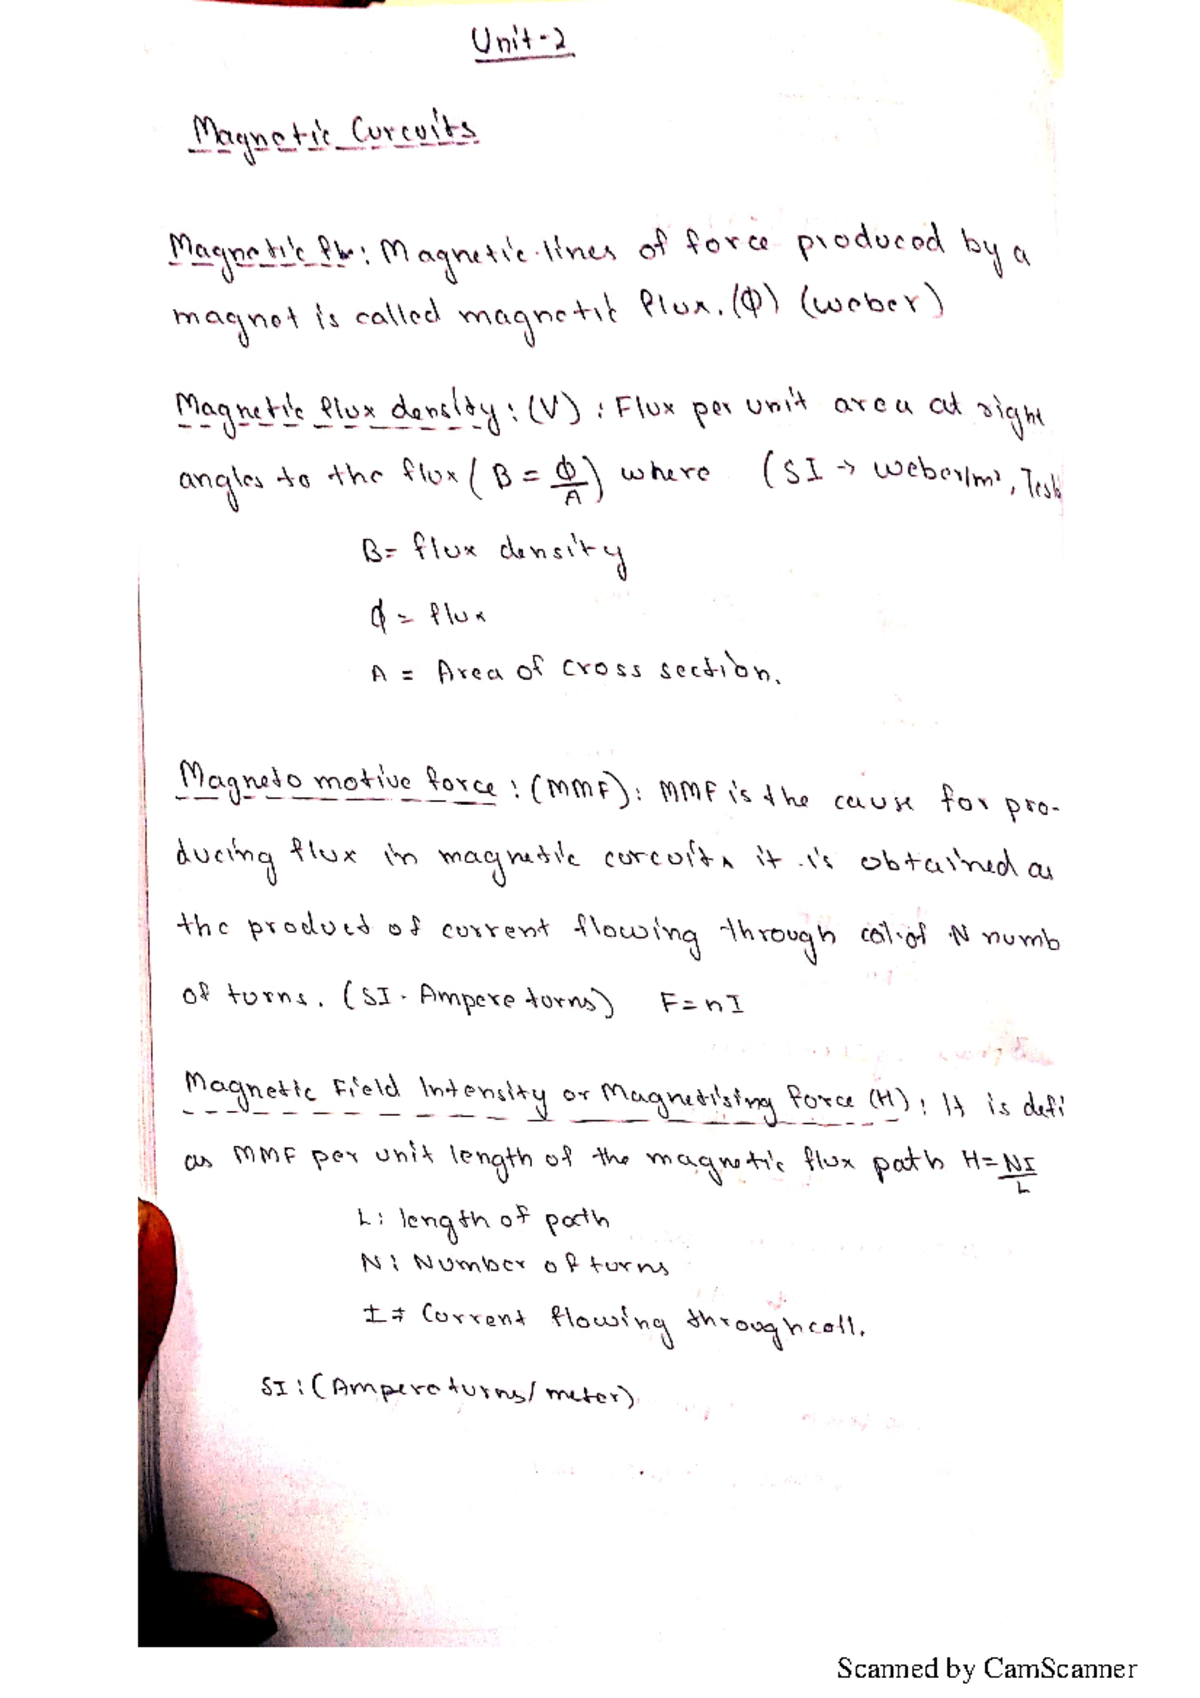 Unit-2
Magnetic Curcuits
Magnetic flux: Magnetic lines of force produced by a
magnet is called magnetic flux. (Φ) (weber)
Magnetic flux density: (V) : Flux per unit area at right
angles to the flux ( B = Φ/A ) where (SI → weber/m², Tesl
B= flux density
Φ = flux
A = Area of cross section.
Magneto motive force : (MMF): MMF is the cause for pro-
ducing flux in magnetic curcuit, it is obtained as
the product of current flowing through coil of N numb
of turns. (SI - Ampere turns) F=nI
Magnetic Field Intensity or Magnetising force (H): It is defi
as MMF per unit length of the magnetic flux path H=NI/L
L: length of path
N: Number of turns
I= Current flowing through coil.
SI: (Ampere turns/meter)
Scanned by CamScanner